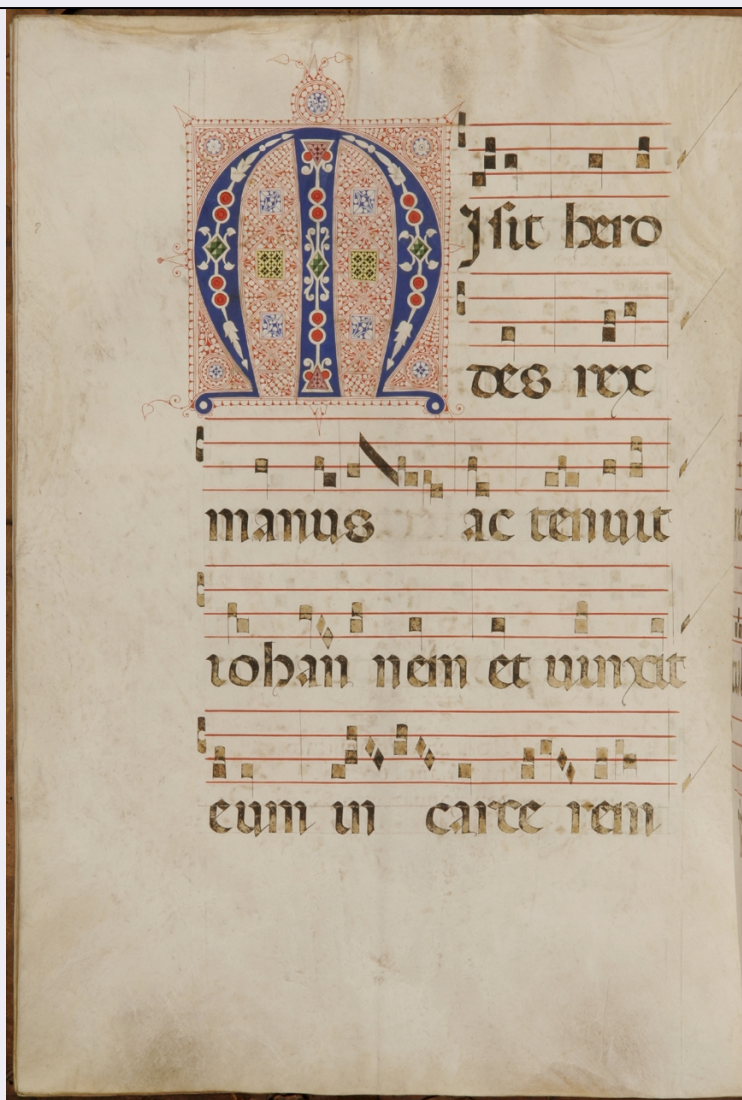 MJsit hero
des rex
manus ac tenuit
iohan nem et uinxit
eum in carce rem